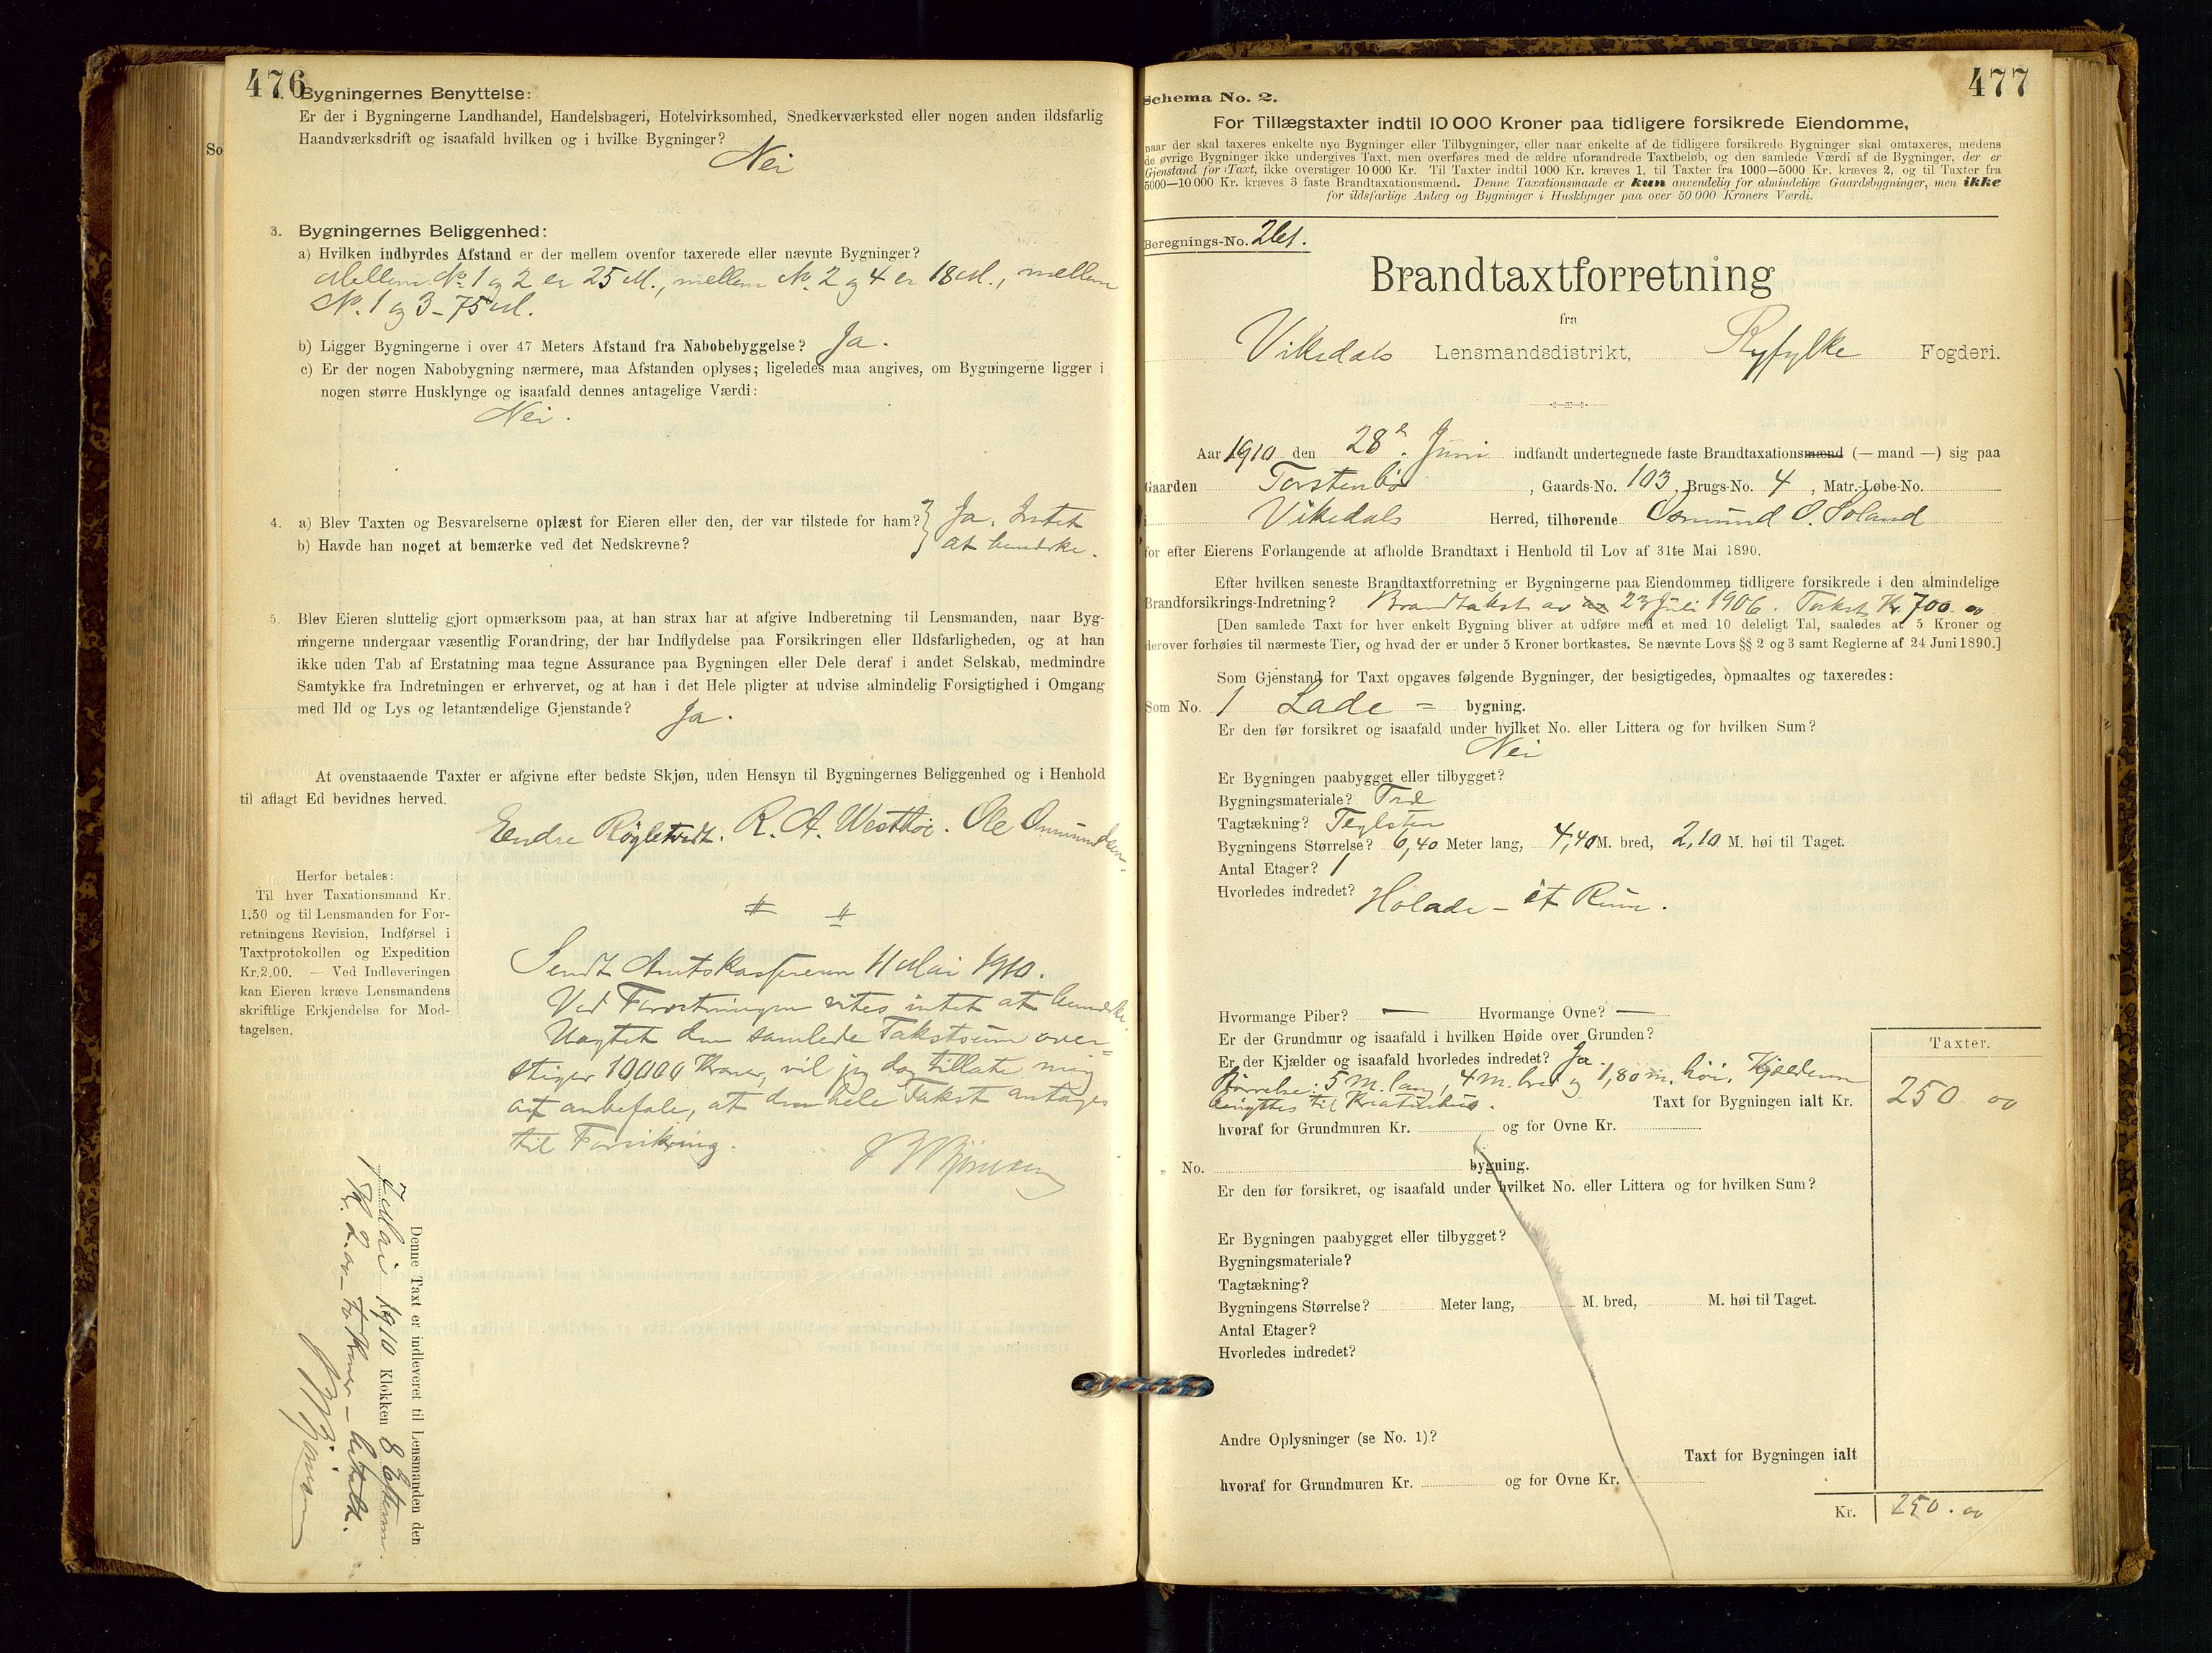 476
Bygningernes Benyttelse:
Er der i Bygningerne Landhandel, Handelsbageri, Hotelvirksomhed, Snedkerværksted eller nogen anden ildsfarlig
Haandværksdrift og isaafald hvilken og i hvilke Bygninger?
Nei
So
3. Bygningernes Beliggenhed:
a) Hvilken indbyrdes Afstand er der mellem ovenfor taxerede eller nævnte Bygninger?
Mellem No. 1 og 2 er 25 M., mellem No. 2 og 4 er 18 M., mellem
No. 1 og 3 - 75 M.
b) Ligger Bygningerne i over 47 Meters Afstand fra Nabobebyggelse? Ja.
c) Er der nogen Nabobygning nærmere, maa Afstanden oplyses; ligeledes maa angives, om Bygningerne ligger i
nogen større Husklynge og isaafald dennes antagelige Værdi:
Nei.
4. a) Blev Taxten og Besvarelserne oplæst for Eieren eller den, der var tilstede for ham? } Ja. Intet
b) Havde han noget at bemærke ved det Nedskrevne? at bemærke.
5. Blev Eieren sluttelig gjort opmærksom paa, at han strax har at afgive Indberetning til Lensmanden, naar Byg-
ningerne undergaar væsentlig Forandring, der har Indflydelse paa Forsikringen eller Ildsfarligheden, og at han
ikke uden Tab af Erstatning maa tegne Assurance paa Bygningen eller Dele deraf i andet Selskab, medmindre
Samtykke fra Indretningen er erhvervet, og at han i det Hele pligter at udvise almindelig Forsigtighed i Omgang
med Ild og Lys og letantændelige Gjenstande? Ja.
At ovenstaaende Taxter er afgivne efter bedste Skjøn, uden Hensyn til Bygningernes Beliggenhed og i Henhold
til aflagt Ed bevidnes herved.
Endre Røgletvedt. R. A. Westbøe. Ole Omundsen.
Herfor betales:
Til hver Taxationsmand Kr.
1.50 og til Lensmanden for For-
retningens Revision, Indførsel i
Taxtprotokollen og Expedition
Kr. 2.00. — Ved Indleveringen
kan Eieren kræve Lensmandens
skriftlige Erkjendelse for Mod-
tagelsen.
Sendt Amtskassereren 11 Mai 1910.
Ved Forretningen vites intet at bemærke.
Uagtet den samlede Takstsum over=
stiger 10,000 Kroner, vil jeg dog tillate mig
at anbefale, at den hele Takst antages
til Forsikring.
Denne Taxt er indleveret til Lensmanden den
7 Mai 1910 Klokken 8 Efterm.
Kr. 2.00 - to Kroner - betalt.
477
Schema No. 2.
For Tillægstaxter indtil 10 000 Kroner paa tidligere forsikrede Eiendomme,
naar der skal taxeres enkelte nye Bygninger eller Tilbygninger, eller naar enkelte af de tidligere forsikrede Bygninger skal omtaxeres, medens
de øvrige Bygninger ikke undergives Taxt, men overføres med de ældre uforandrede Taxtbeløb, og den samlede Værdi af de Bygninger, der er
Gjenstand for Taxt, ikke overstiger 10 000 Kr. Til Taxter indtil 1000 Kr. kræves 1, til Taxter fra 1000—5000 Kr. kræves 2, og til Taxter fra
5000—10 000 Kr. kræves 3 faste Brandtaxationsmænd. Denne Taxationsmaade er kun anvendelig for almindelige Gaardsbygninger, men ikke
for ildsfarlige Anlæg og Bygninger i Husklynger paa over 50 000 Kroners Værdi.
Beregnings-No. 261.
Brandtaxtforretning
fra
Vikedals Lensmandsdistrikt, Ryfylke Fogderi.
Aar 1910 den 28de Juni indfandt undertegnede faste Brandtaxationsmænd (— mand —) sig paa
Gaarden Torstenbø, Gaards-No. 103, Brugs-No. 4, Matr.-Løbe-No.
i Vikedals Herred, tilhørende Osmund O. Soland
for efter Eierens Forlangende at afholde Brandtaxt i Henhold til Lov af 31te Mai 1890.
Efter hvilken seneste Brandtaxtforretning er Bygningerne paa Eiendommen tidligere forsikrede i den almindelige
Brandforsikrings-Indretning? Brandtakst av 23 Juli 1906. Takst Kr. 700.00
[Den samlede Taxt for hver enkelt Bygning bliver at udføre med et med 10 deleligt Tal, saaledes at 5 Kroner og
derover forhøies til nærmeste Tier, og hvad der er under 5 Kroner bortkastes. Se nævnte Lovs §§ 2 og 3 samt Reglerne af 24 Juni 1890.]
Som Gjenstand for Taxt opgaves følgende Bygninger, der besigtigedes, opmaaltes og taxeredes:
Som No. 1 Lade = bygning.
Er den før forsikret og isaafald under hvilket No. eller Littera og for hvilken Sum?
Nei
Er Bygningen paabygget eller tilbygget?
Bygningsmateriale? Træ
Tagtækning? Teglsten
Bygningens Størrelse? 6,40 Meter lang, 4,40 M. bred, 2,10 M. høi til Taget.
Antal Etager? 1
Hvorledes indredet? Hølade - et Rum.
Hvormange Piber? — Hvormange Ovne? —
Er der Grundmur og isaafald i hvilken Høide over Grunden?
Er der Kjælder og isaafald hvorledes indredet? Ja.
Størrelse: 5 M. lang, 4 M. bred og 1,80 m. høi. Kjælderen
benyttes til Kreaturhus.
Taxter.
Taxt for Bygningen ialt Kr. 250 00
hvoraf for Grundmuren Kr. og for Ovne Kr.
„ No. bygning.
Er den før forsikret, og isaafald under hvilket No. eller Littera og for hvilken Sum?
Er Bygningen paabygget eller tilbygget?
Bygningsmateriale?
Tagtækning?
Bygningens Størrelse? Meter lang, M. bred, M. høi til Taget.
Antal Etager?
Hvorledes indredet?
Andre Oplysninger (se No. 1)?
Taxt for Bygningen ialt
hvoraf for Grundmuren Kr. og for Ovne Kr.
Kr. 250.00